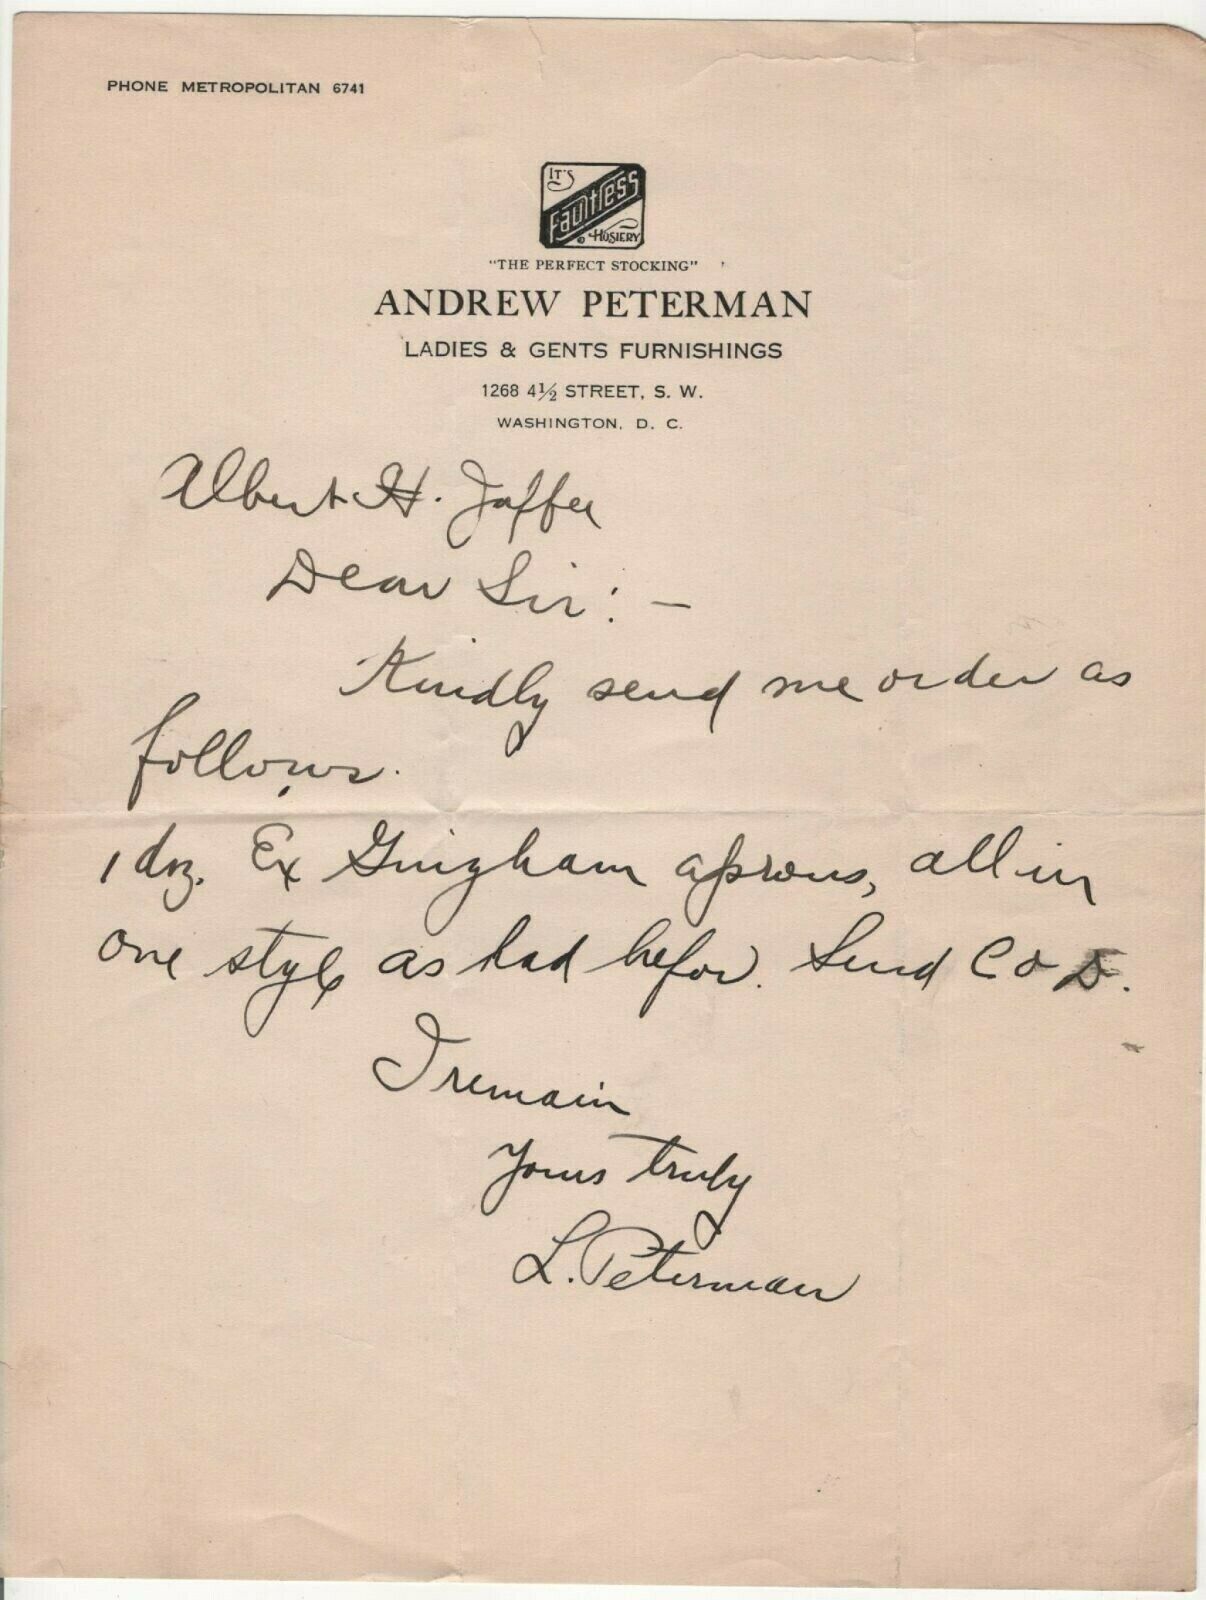 PHONE METROPOLITAN 6741
IT'S
Faultless
HOSIERY
"THE PERFECT STOCKING"
ANDREW PETERMAN
LADIES & GENTS FURNISHINGS
1268 4½ STREET, S. W.
WASHINGTON, D. C.
Albert H. Jaffee
Dear Sir:-
Kindly send me order as
follows.
1 doz. Ex Gingham aprons, all in
one style as had befor. Send C O D.
I remain
Yours truly
L. Peterman